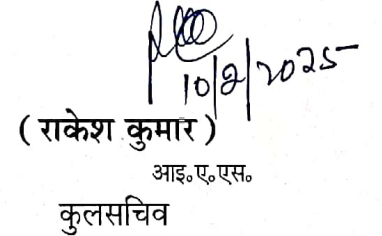 10/2/2025
( राकेश कुमार )
आइ०ए०एस०
कुलसचिव